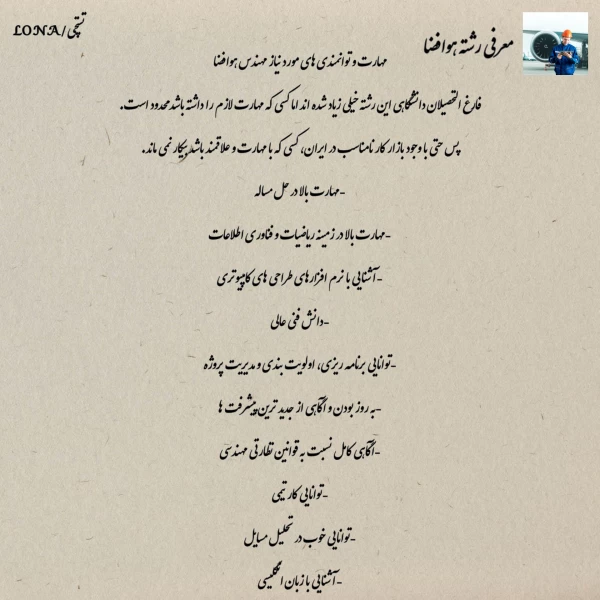 تستچی/LONA
معرفی رشته هوافضا
مهارت و توانمندی های مورد نیاز مهندس هوافضا
فارغ التحصیلان دانشگاهی این رشته خیلی زیاد شده اند اما کسی که مهارت لازم را داشته باشد محدود است.
پس حتی با وجود بازار کار نامناسب در ایران، کسی که با مهارت و علاقمند باشد بیکار نمی ماند.
-مهارت بالا در حل مساله
-مهارت بالا در زمینه ریاضیات و فناوری اطلاعات
-آشنایی با نرم افزارهای طراحی های کامپیوتری
-دانش فنی عالی
-توانایی برنامه ریزی، اولویت بندی و مدیریت پروژه
-به روز بودن و آگاهی از جدید ترین پیشرفت ها
-آگاهی کامل نسبت به قوانین نظارتی مهندسی
-توانایی کار تیمی
-توانایی خوب در تحلیل مسایل
-آشنایی با زبان انگلیسی